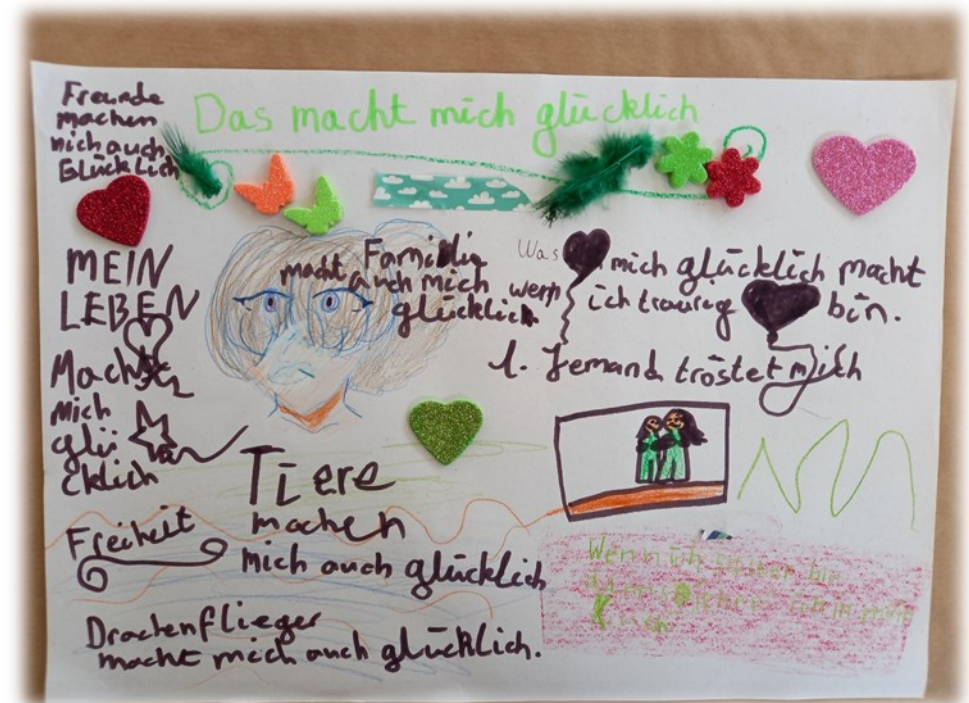 Das macht mich glücklich
Freunde
machen
mich auch
Glücklich
MEIN
LEBEN
Macht
mich
glü
cklich
Familie
macht auch mich
glücklich
Was mich glücklich macht
wenn ich traurig bin.
1. Jemand tröstet mich
Tiere
machen
mich auch glücklich
Freiheit
Drachenflieger
macht mich auch glücklich.
Wenn ich bin